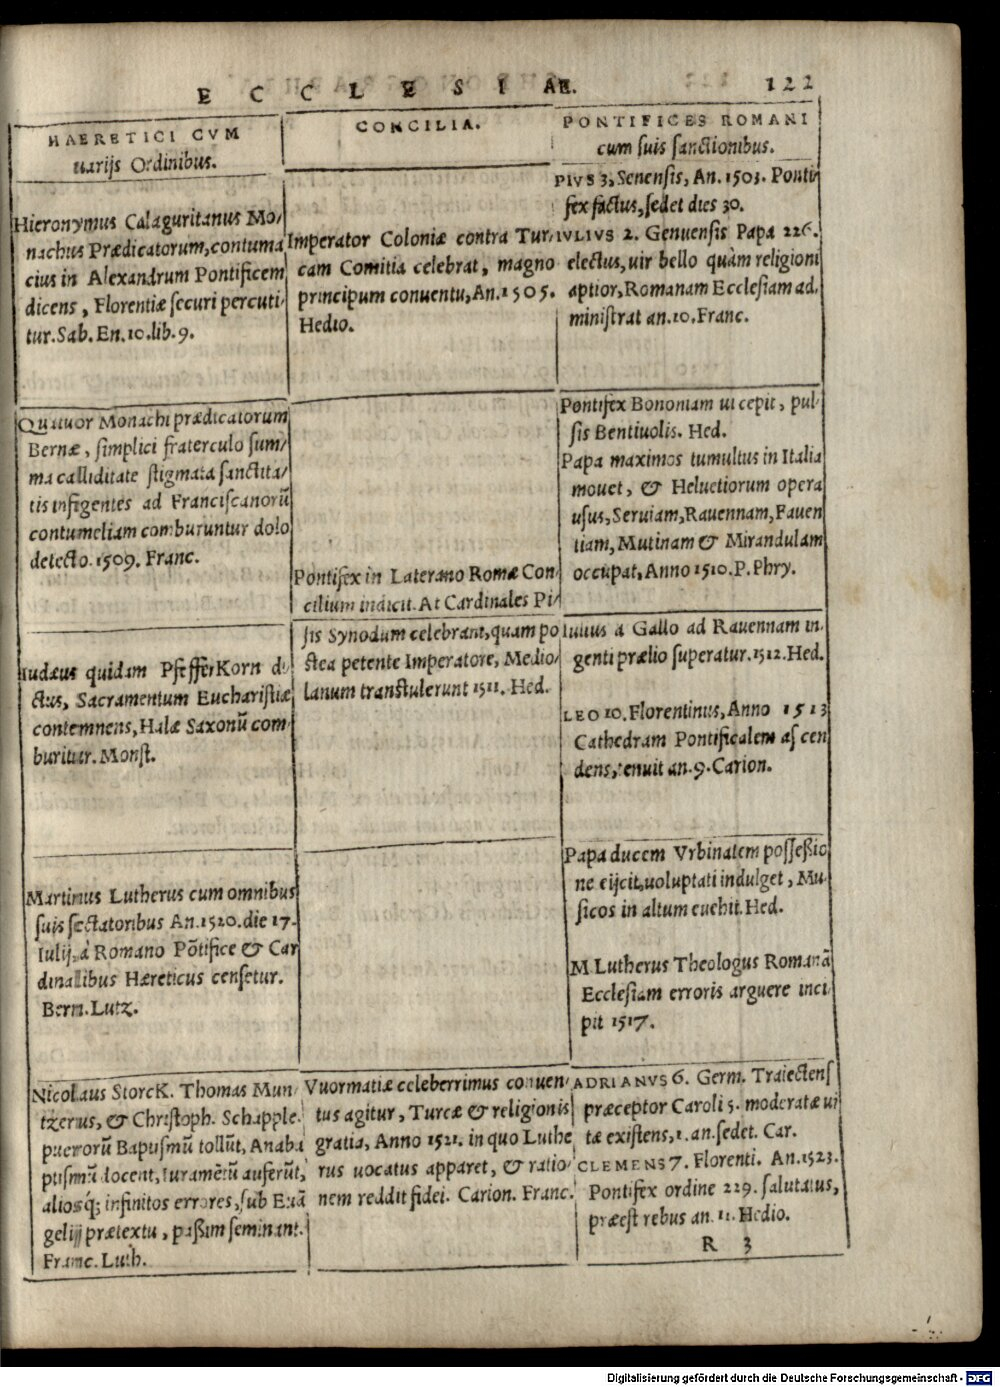 ECCLESIAE. 122
HAERETICI CVM
uarijs Ordinibus.
Hieronymus Calaguritanus Mo/
nachus Prædicatorum, contuma
cius in Alexandrum Pontificem
dicens, Florentiæ securi percuti/
tur. Sab. En. 10. lib. 9.
Quatuor Monachi prædicatorum
Bernæ, simplici fraterculo sum/
ma calliditate stigmata sanctita/
tis infigentes ad Franciscanorũ
contumeliam comburuntur dolo
detecto. 1509. Franc.
Iudæus quidam PfefferKorn di/
ctus, Sacramentum Eucharistiæ
contemnens, Halæ Saxonũ com/
buritur. Monst.
Martinus Lutherus cum omnibus
suis sectatoribus An. 1520. die 17.
Iulij, à Romano Põtifice & Car
dinalibus Hæreticus censetur.
Bern. Lutz.
Nicolaus StorcK. Thomas Mun/
tzerus, & Christoph. Schapple.
puerorũ Baptismũ tollũt, Anaba
ptismũ docent, iuramẽtũ auferũt,
aliosq́; infinitos errores, sub Euã
gelij prætextu, paßim seminant.
Franc. Luth.
CONCILIA.
Imperator Coloniæ contra Tur/
cam Comitia celebrat, magno
principum conuentu, An. 1505.
Hedio.
Pontifex in Laterano Romæ Con/
cilium indicit. At Cardinales Pi/
sis Synodum celebrant, quam po
stea petente Imperatore, Medio/
lanum transtulerunt 1511. Hed.
Vuormatiæ celeberrimus conuen/
tus agitur, Turcæ & religionis
gratia, Anno 1521. in quo Luthe
rus uocatus apparet, & ratio/
nem reddit fidei. Carion. Franc.
PONTIFICES ROMANI
cum suis sanctionibus.
PIVS 3, Senensis, An. 1503. Ponti/
fex factus, sedet dies 30.
IVLIVS 2. Genuensis Papa 226.
electus, uir bello quàm religioni
aptior, Romanam Ecclesiam ad/
ministrat an. 10. Franc.
Pontifex Bononiam ui cepit, pul/
sis Bentiuolis. Hed.
Papa maximos tumultus in Italia
mouet, & Heluetiorum opera
usus, Seruiam, Rauennam, Fauen
tiam, Mutinam & Mirandulam
occupat, Anno 1510. P. Phry.
Iulius à Gallo ad Rauennam in/
genti prælio superatur. 1512. Hed.
LEO 10. Florentinus, Anno 1513
Cathedram Pontificalem ascen
dens, tenuit an. 9. Carion.
Papa ducem Vrbinatem possessio
ne eijcit, uoluptati indulget, Mu/
sicos in altum euehit. Hed.
M. Lutherus Theologus Romanã
Ecclesiam erroris arguere inci/
pit 1517.
ADRIANVS 6. Germ. Traiectens
præceptor Caroli 5. moderatæ ui
tæ existens, 1. an. sedet. Car.
CLEMENS 7. Florenti. An. 1523.
Pontifex ordine 229. salutatus,
præest rebus an. 11. Hedio.
R 3
Digitalisierung gefördert durch die Deutsche Forschungsgemeinschaft - DFG